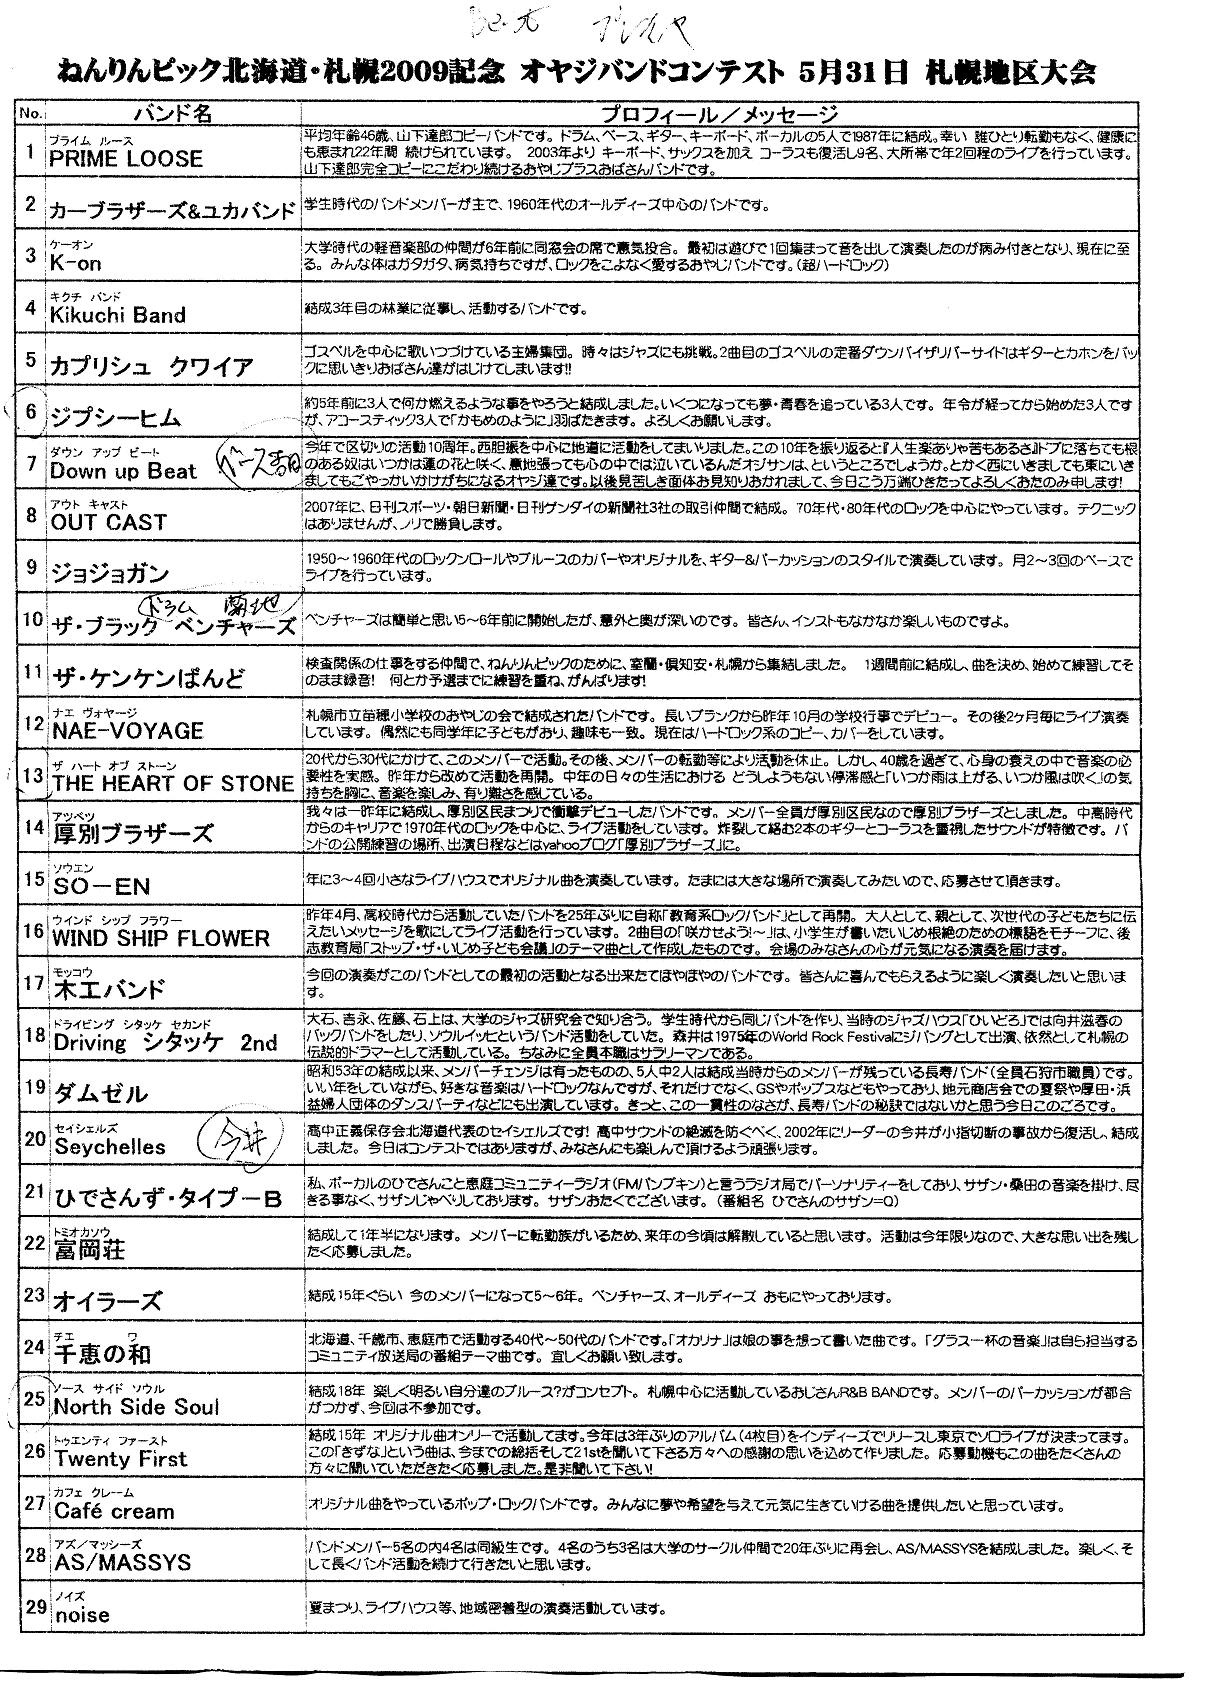 ねんりんピック北海道・札幌2009記念 オヤジバンドコンテスト 5月31日 札幌地区大会
No. バンド名 プロフィール／メッセージ
プライム ルース
1 PRIME LOOSE
平均年齢46歳、山下達郎コピーバンドです。ドラム、ベース、ギター、キーボード、ボーカルの5人で1987年に結成。幸い 誰ひとり転勤もなく、健康に
も恵まれ22年間 続けられています。 2003年より キーボード、サックスを加え コーラスも復活し9名、大所帯で年2回程のライブを行っています。
山下達郎完全コピーにこだわり続けるおやじプラスおばさんバンドです。
2 カーブラザーズ&ユカバンド 学生時代のバンドメンバーが主で、1960年代のオールディーズ中心のバンドです。
ケーオン
3 K-on
大学時代の軽音楽部の仲間が6年前に同窓会の席で意気投合。最初は遊びで1回集まって音を出して演奏したのが病み付きとなり、現在に至
る。みんな体はガタガタ、病気持ちですが、ロックをこよなく愛するおやじバンドです。（超ハードロック）
キクチ バンド
4 Kikuchi Band 結成3年目の林業に従事し、活動するバンドです。
5 カプリシュ クワイア
ゴスペルを中心に歌いつづけている主婦集団。時々はジャズにも挑戦。2曲目のゴスペルの定番ダウンバイザリバーサイドはギターとカホンをバッ
クに思いきりおばさん達がはじけてしまいます!!
6 ジプシーヒム
約5年前に3人で何か燃えるような事をやろうと結成しました。いくつになっても夢・青春を追っている3人です。年令が経ってから始めた3人です
が、アコースティック3人で「かもめのように」羽ばたきます。よろしくお願いします。
ダウン アップ ビート
7 Down up Beat
今年で区切りの活動10周年。西胆振を中心に地道に活動をしてまいりました。この10年を振り返ると『人生楽ありゃ苦もあるさ』ドブに落ちても根
のある奴はいつかは蓮の花と咲く、意地張っても心の中では泣いているんだオジサンは、というところでしょうか。とかく西にいきましても東にいき
ましてもごやっかいかけがちになるオヤジ達です。以後見苦しき面体お見知りおかれまして、今日こう万端ひきたってよろしくおたのみ申します!
アウト キャスト
8 OUT CAST
2007年に、日刊スポーツ・朝日新聞・日刊ゲンダイの新聞社3社の取引仲間で結成。70年代・80年代のロックを中心にやっています。テクニック
はありませんが、ノリで勝負します。
9 ジョジョガン
1950～1960年代のロックンロールやブルースのカバーやオリジナルを、ギター&パーカッションのスタイルで演奏しています。月2～3回のペースで
ライブを行っています。
ドラム 菊地
10 ザ・ブラック ベンチャーズ ベンチャーズは簡単と思い5～6年前に開始したが、意外と奥が深いのです。皆さん、インストもなかなか楽しいものですよ。
11 ザ・ケンケンぱんど
検査関係の仕事をする仲間で、ねんりんピックのために、室蘭・倶知安・札幌から集結しました。 1週間前に結成し、曲を決め、始めて練習してそ
のまま録音! 何とか予選までに練習を重ね、がんばります!
ナエ ヴォヤージ
12 NAE-VOYAGE
札幌市立苗穂小学校のおやじの会で結成されたバンドです。長いブランクから昨年10月の学校行事でデビュー。その後2ヶ月毎にライブ演奏
しています。偶然にも同学年に子どもがおり、趣味も一致。現在はハードロック系のコピー、カバーをしています。
ザ ハート オブ ストーン
13 THE HEART OF STONE
20代から30代にかけて、このメンバーで活動。その後、メンバーの転勤等により活動を休止。しかし、40歳を過ぎて、心身の衰えの中で音楽の必
要性を実感。昨年から改めて活動を再開。中年の日々の生活における どうしようもない停滞感と「いつか雨は上がる、いつか風は吹く」の気
持ちを胸に、音楽を楽しみ、有り難さを感じている。
アツベツ
14 厚別ブラザーズ
我々は一昨年に結成し、厚別区民まつりで衝撃デビューしたバンドです。メンバー全員が厚別区民なので厚別ブラザーズとしました。中高時代
からのキャリアで1970年代のロックを中心に、ライブ活動をしています。炸裂して絡む2本のギターとコーラスを重視したサウンドが特徴です。バ
ンドの公開練習の場所、出演日程などはyahooブログ「厚別ブラザーズ」に。
ソウエン
15 SO－EN 年に3～4回小さなライブハウスでオリジナル曲を演奏しています。たまには大きな場所で演奏してみたいので、応募させて頂きます。
ウインド シップ フラワー
16 WIND SHIP FLOWER
昨年4月、高校時代から活動していたバンドを25年ぶりに自称「教育系ロックバンド」として再開。大人として、親として、次世代の子どもたちに伝
えたいメッセージを歌にしてライブ活動を行っています。2曲目の「咲かせよう!～」は、小学生が書いたいじめ根絶のための標語をモチーフに、後
志教育局「ストップ・ザ・いじめ子ども会議」のテーマ曲として作成したものです。会場のみなさんの心が元気になる演奏を届けます。
モッコウ
17 木工バンド
今回の演奏がこのバンドとしての最初の活動となる出来たてほやほやのバンドです。皆さんに喜んでもらえるように楽しく演奏したいと思いま
す。
ドライビング シタッケ セカンド
18 Driving シタッケ 2nd
大石、吉永、佐藤、石上は、大学のジャズ研究会で知り合う。学生時代から同じバンドを作り、当時のジャズハウス「ひいどろ」では向井滋春の
バックバンドをしたり、ソウルイッヒというバンド活動をしていた。森井は1975年のWorld Rock Festivalにジパングとして出演、依然として札幌の
伝説的ドラマーとして活動している。ちなみに全員本職はサラリーマンである。
19 ダムゼル
昭和53年の結成以来、メンバーチェンジは有ったものの、5人中2人は結成当時からのメンバーが残っている長寿バンド（全員石狩市職員）です。
いい年をしていながら、好きな音楽はハードロックなんですが、それだけでなく、GSやポップスなどもやっており、地元商店会での夏祭や厚田・浜
益婦人団体のダンスパーティなどにも出演しています。きっと、この一貫性のなさが、長寿バンドの秘訣ではないかと思う今日このごろです。
セイシェルズ
20 Seychelles 今井
高中正義保存会北海道代表のセイシェルズです!高中サウンドの絶滅を防ぐべく、2002年にリーダーの今井が小指切断の事故から復活し、結成
しました。今日はコンテストではありますが、みなさんにも楽しんで頂けるよう頑張ります。
21 ひでさんず・タイプ－B
私、ボーカルのひでさんこと恵庭コミュニティーラジオ（FMパンプキン）と言うラジオ局でパーソナリティーをしており、サザン・桑田の音楽を掛け、尽
きる事なく、サザンしゃべりしております。サザンおたくでございます。（番組名 ひでさんのサザン=Q）
トミオカソウ
22 富岡荘
結成して1年半になります。メンバーに転勤族がいるため、来年の今頃は解散していると思います。活動は今年限りなので、大きな思い出を残し
たく応募しました。
23 オイラーズ 結成15年ぐらい 今のメンバーになって5～6年。ベンチャーズ、オールディーズ おもにやっております。
チエ ワ
24 千恵の和
北海道、千歳市、恵庭市で活動する40代～50代のバンドです。「オカリナ」は娘の事を想って書いた曲です。「グラス一杯の音楽」は自ら担当する
コミュニティ放送局の番組テーマ曲です。宜しくお願い致します。
ノース サイド ソウル
25 North Side Soul
結成18年 楽しく明るい自分達のブルース?がコンセプト。札幌中心に活動しているおじさんR&B BANDです。メンバーのパーカッションが都合
がつかず、今回は不参加です。
トゥエンティ ファースト
26 Twenty First
結成15年 オリジナル曲オンリーで活動してます。今年は3年ぶりのアルバム（4枚目）をインディーズでリリースし東京でソロライブが決まってます。
この「きずな」という曲は、今までの総括そして21stを聞いて下さる方々への感謝の思いを込めて作りました。応募動機もこの曲をたくさんの
方々に聞いていただきたく応募しました。是非聞いて下さい!
カフェ クレーム
27 Café cream オリジナル曲をやっているポップ・ロックバンドです。みんなに夢や希望を与えて元気に生きていける曲を提供したいと思っています。
アズ／マッシーズ
28 AS/MASSYS
バンドメンバー5名の内4名は同級生です。4名のうち3名は大学のサークル仲間で20年ぶりに再会し、AS/MASSYSを結成しました。楽しく、そ
して長くバンド活動を続けて行きたいと思います。
ノイズ
29 noise 夏まつり、ライブハウス等、地域密着型の演奏活動しています。